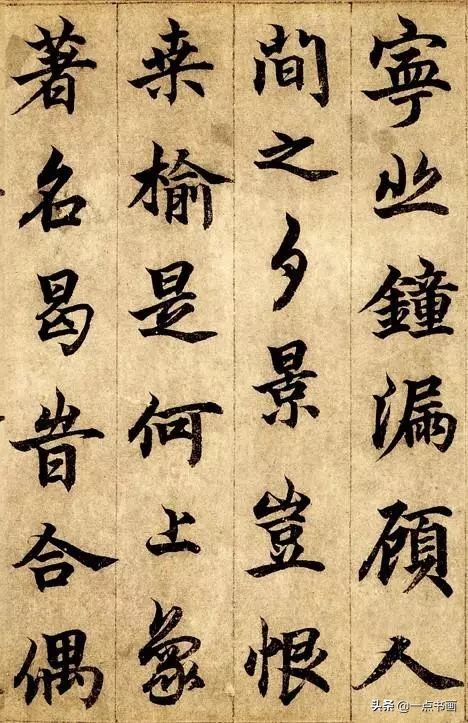 寧止鐘漏顧人
間之夕景豈恨
桒榆是何上象
著名曷旹合偶
头条 @一点书画